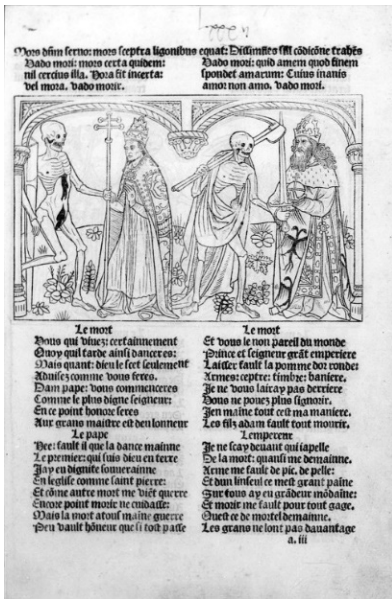 Mors dñm seruo: mors sceptra ligonibus equat: Dissimiles sili cõdicõne trahẽs
Vado mori: mors certa quidem:
nil cercius illa. Hora sit incerta:
vel mora. vado morir.
Vado mori: quid amem quod finem
spondet amarum: Cuius inanis
amor non amo. vado mori.
Le mort
Vous qui viuez: certainnement
Quoy quil tarde ainsi danceres:
Mais quant: dieu le scet seulement
Aduisez comme vous feres.
Dam pape: vous commenceres
Comme le plus digne seigneur:
En ce point honore seres
Aux grans maistre est deu lonneur
Le pape
Hee: fault il que la dance mainne
Le premier: qui suis dieu en terre
Jay eu dignite souuerainne
En leglise comme saint pierre:
Et cõme autre mort me viẽt querre
Encore point morir ne cuidasse:
Mais la mort a tous maine guerre
Peu vault hõneur que si tost passe
Le mort
Et vous le non pareil du monde
Prince et seigneur grãt emperiere
Laisser fault la pomme dor ronde:
Armes: ceptre: timbre: baniere.
Je ne vous lairay pas derriere
Vous ne pouez plus signorir.
Jen maine tout cest ma maniere.
Les filz adam fault tout mourir.
Lempereur
Je ne scay deuant qui iapelle
De la mort: quansi me demainne.
Arme me fault de pic. de pelle:
Et dun linseul ce mest grant paine
Sur tous ay eu grãdeur mõdaine:
Et morir me fault pour tout gage.
Quest ce de mortel demainne.
Les grans ne lont pas dauantage
a. iii